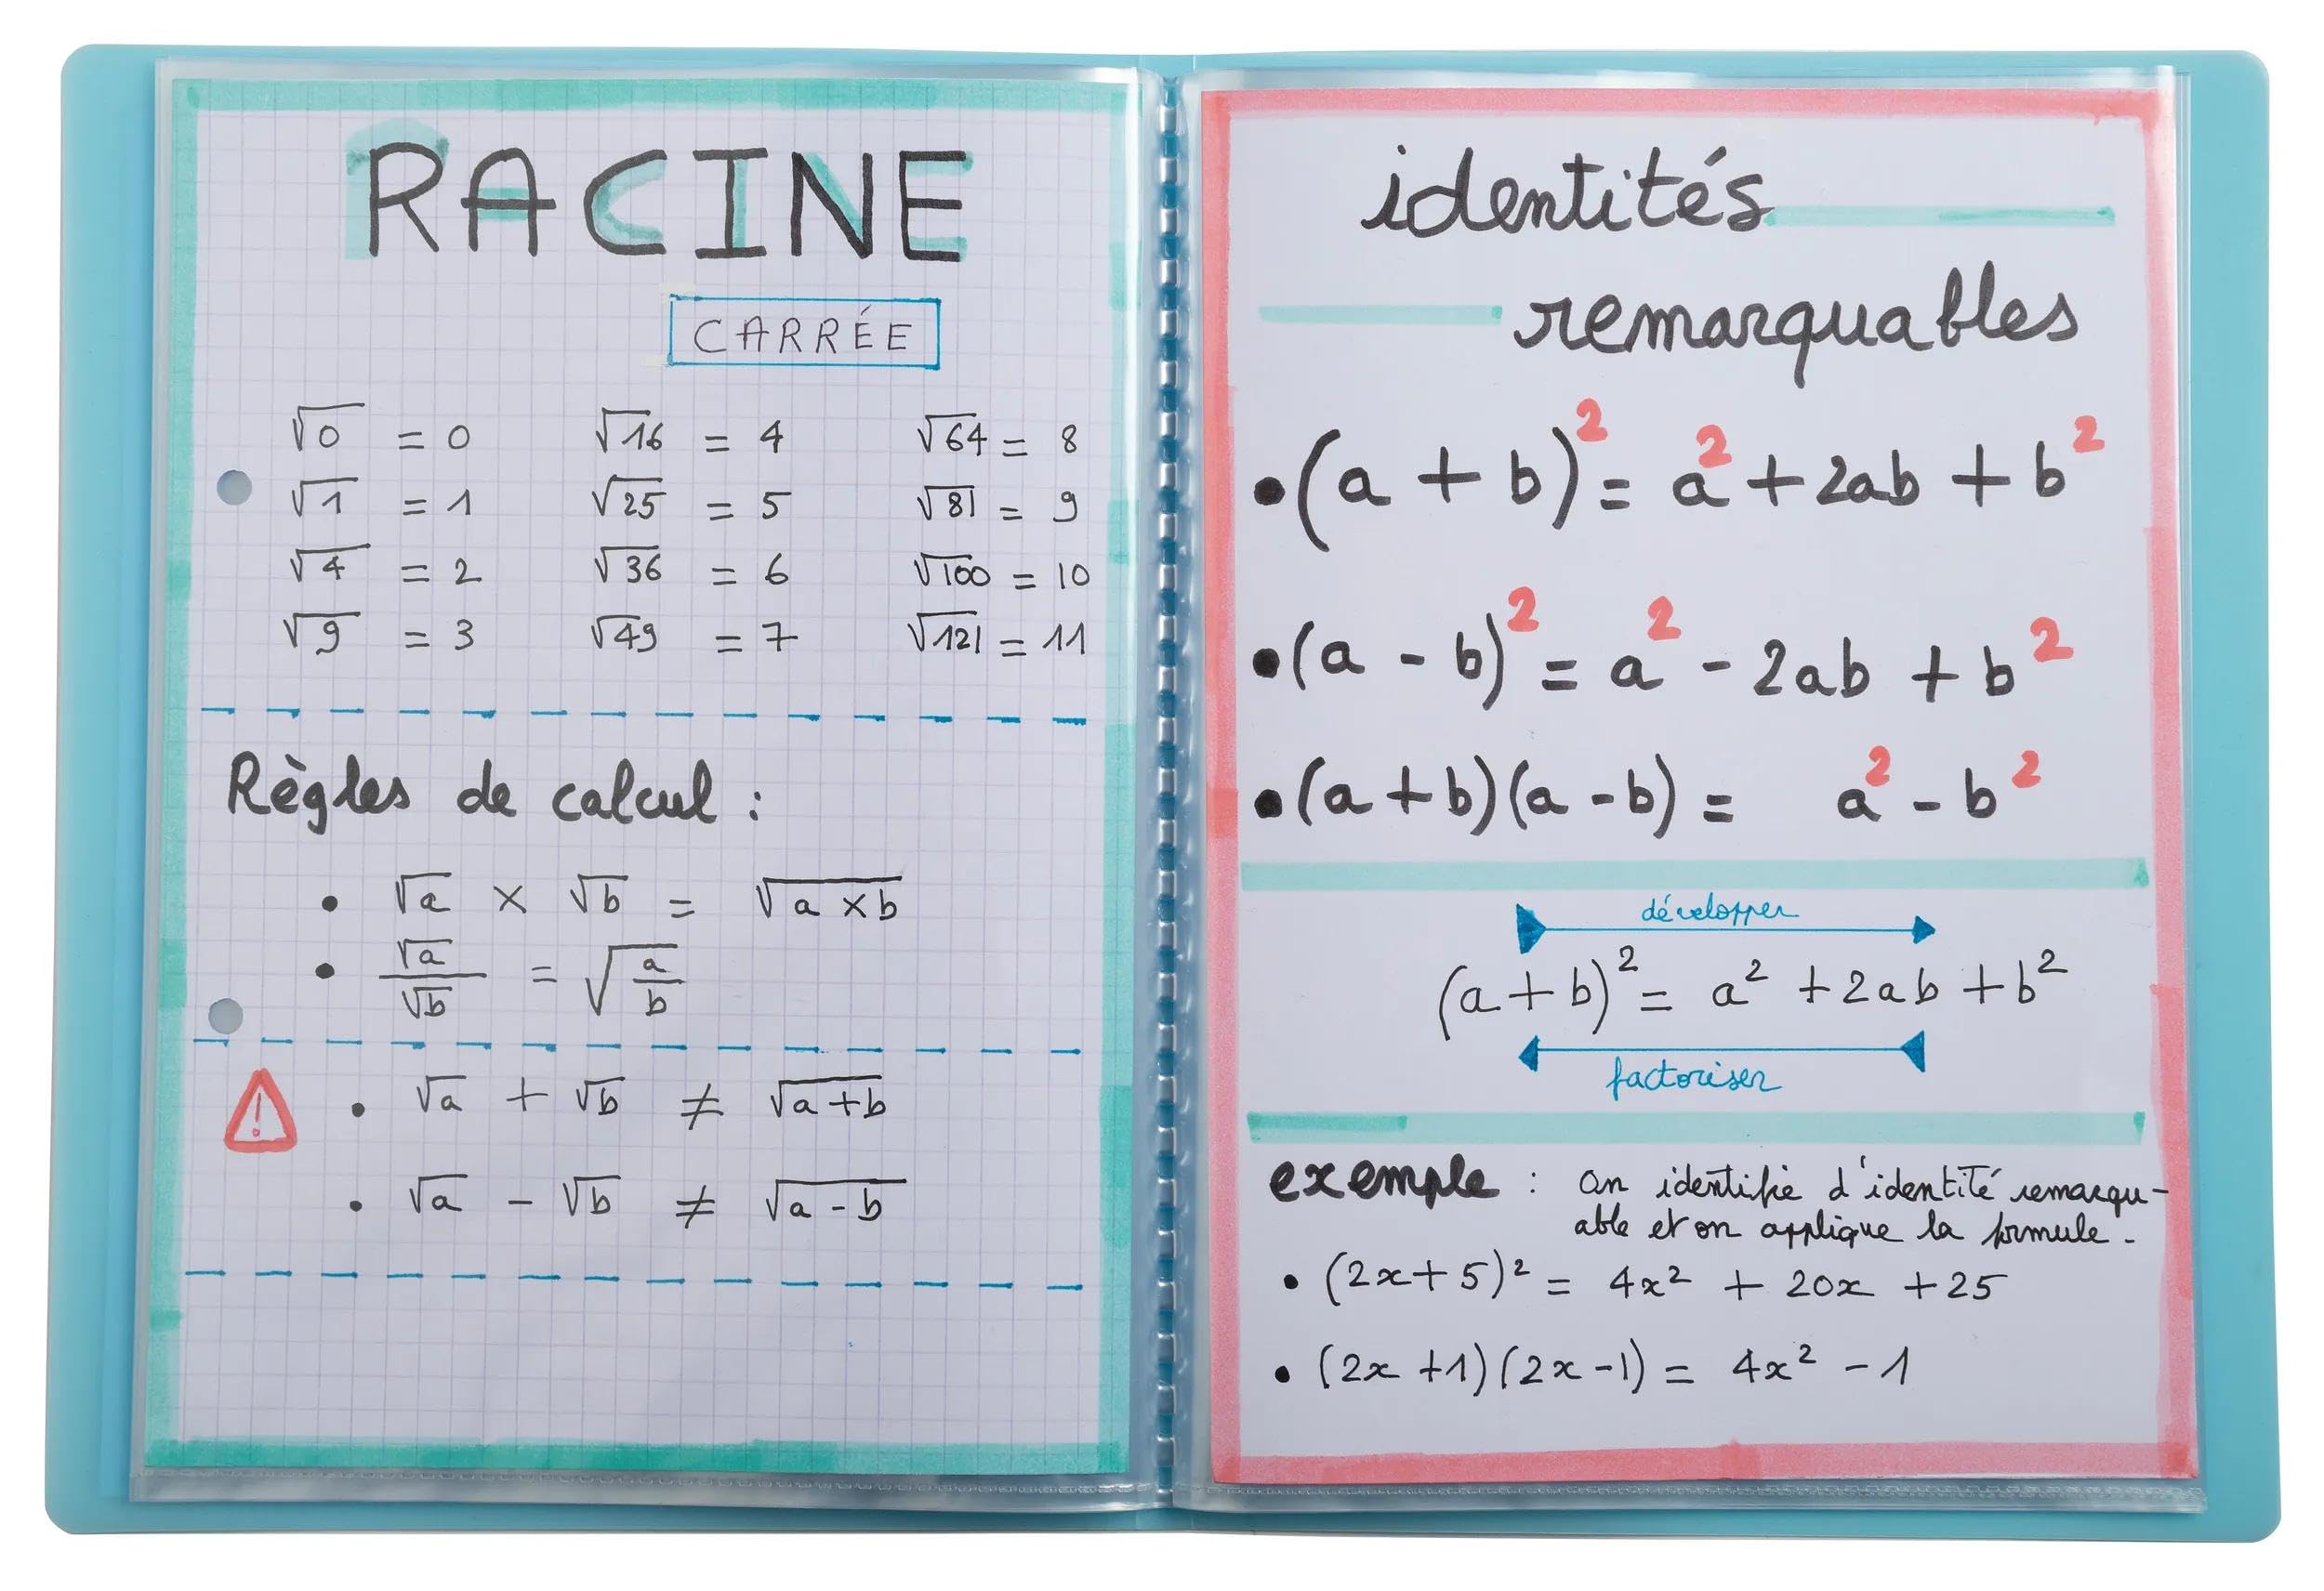 RACINE
CARRÉE
√0 = 0 √16 = 4 √64 = 8
√1 = 1 √25 = 5 √81 = 9
√4 = 2 √36 = 6 √100 = 10
√9 = 3 √49 = 7 √121 = 11
Règles de calcul :
• √a × √b = √(a × b)
• √a/√b = √(a/b)
! • √a + √b ≠ √(a+b)
• √a - √b ≠ √(a - b)
identités
remarquables
• (a + b)² = a² + 2ab + b²
• (a - b)² = a² - 2ab + b²
• (a + b)(a - b) = a² - b²
développer
(a + b)² = a² + 2ab + b²
factoriser
exemple : on identifie d'identité remarqu-
able et on applique la formule -
• (2x + 5)² = 4x² + 20x + 25
• (2x + 1)(2x - 1) = 4x² - 1